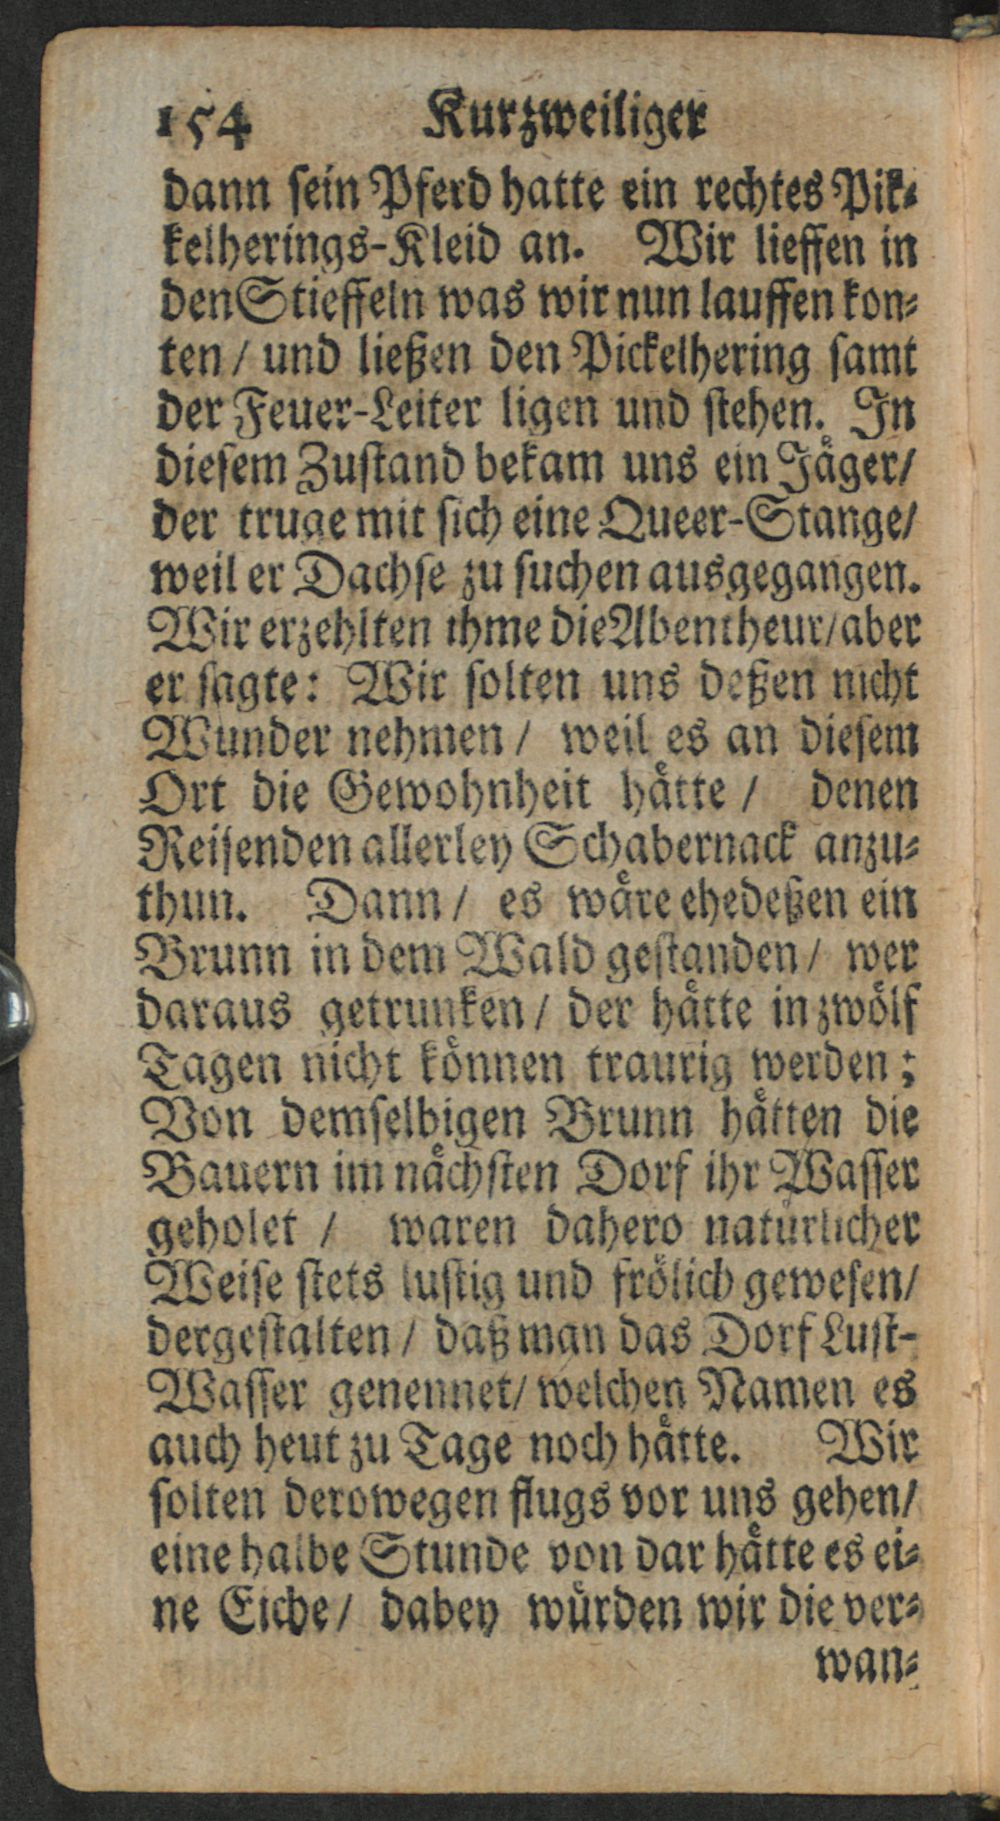 154 Kurzweiliger
dann sein Pferd hatte ein rechtes Pik-
kelherings-Kleid an. Wir lieffen in
den Stieffeln was wir nun lauffen kon-
ten / und ließen den Pickelhering samt
der Feuer-Leiter ligen und stehen. In
diesem Zustand bekam uns ein Jäger/
der truge mit sich eine Queer-Stange/
weil er Dachse zu suchen ausgegangen.
Wir erzehlten ihme die Abentheur/aber
er sagte: Wir solten uns deßen nicht
Wunder nehmen / weil es an diesem
Ort die Gewohnheit hätte / denen
Reisenden allerley Schabernack anzu-
thun. Dann / es wäre ehedeßen ein
Brunn in dem Wald gestanden / wer
daraus getrunken / der hätte in zwölf
Tagen nicht können traurig werden;
Von demselbigen Brunn hätten die
Bauern im nächsten Dorf ihr Wasser
geholet / waren dahero natürlicher
Weise stets lustig und frölich gewesen/
dergestalten / daß man das Dorf Lust-
Wasser genennet/ welchen Namen es
auch heut zu Tage noch hätte. Wir
solten derowegen flugs vor uns gehen/
eine halbe Stunde von dar hätte es ei-
ne Eiche / dabey würden wir die ver-
wan-